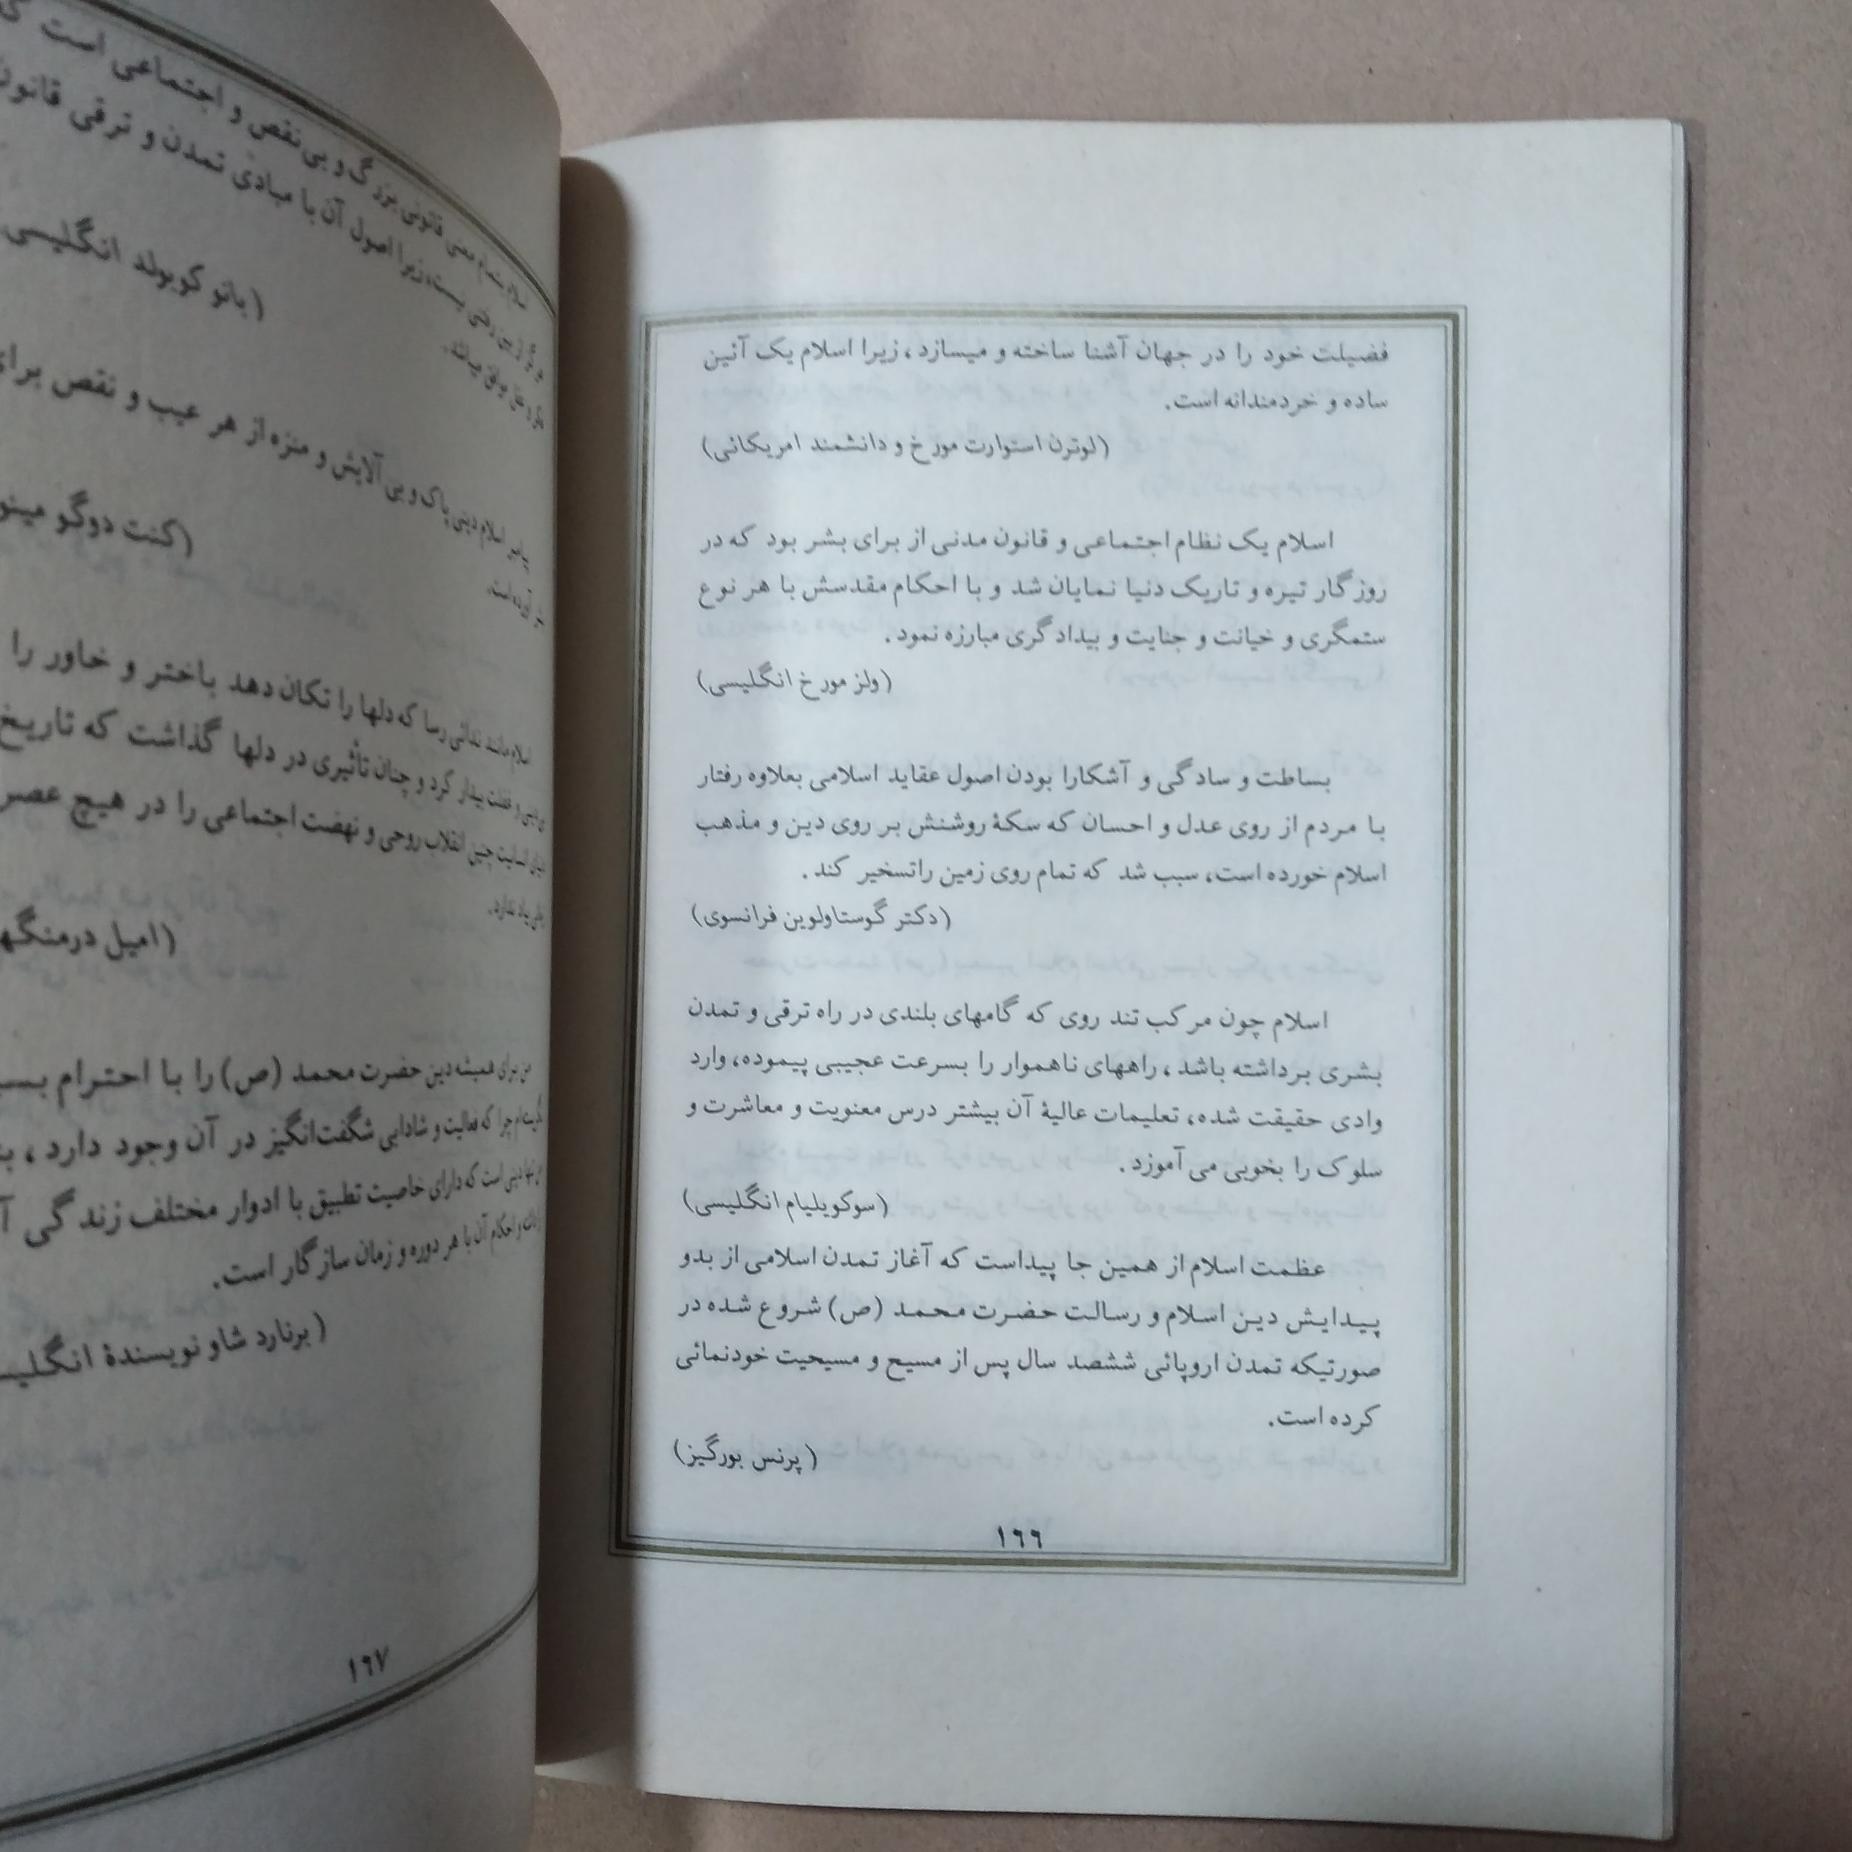 فضیلت خود را در جهان آشنا ساخته و میسازد، زیرا اسلام یک آئین
ساده و خردمندانه است.
(لوترن استوارت مورخ و دانشمند امریکائی)
اسلام یک نظام اجتماعی و قانون مدنی از برای بشر بود که در
روزگار تیره و تاریک دنیا نمایان شد و با احکام مقدسش با هر نوع
ستمگری و خیانت و جنایت و بیدادگری مبارزه نمود.
(ولز مورخ انگلیسی)
بساطت و سادگی و آشکارا بودن اصول عقاید اسلامی بعلاوه رفتار
با مردم از روی عدل و احسان که سکهٔ روشنش بر روی دین و مذهب
اسلام خورده است، سبب شد که تمام روی زمین راتسخیر کند.
(دکتر گوستاولوبن فرانسوی)
اسلام چون مرکب تند روی که گامهای بلندی در راه ترقی و تمدن
بشری برداشته باشد، راههای ناهموار را بسرعت عجیبی پیموده، وارد
وادی حقیقت شده، تعلیمات عالیهٔ آن بیشتر درس معنویت و معاشرت و
سلوک را بخوبی می آموزد.
(سوکویلیام انگلیسی)
عظمت اسلام از همین جا پیداست که آغاز تمدن اسلامی از بدو
پیدایش دین اسلام و رسالت حضرت محمد (ص) شروع شده در
صورتیکه تمدن اروپائی ششصد سال پس از مسیح و مسیحیت خودنمائی
کرده است.
(پرنس بورگیز)
۱۶۶
اسلام بتمام معنی قانونی بزرگ و بی نقص و اجتماعی است
زیرا اصول آن با مبادی تمدن و ترقی
موافق میباشد.
(بانو کوبولد انگلیسی
پیامبر اسلام دینی پاک و بی آلایش و منزه از هر عیب و نقص برای
آورده است.
(کنت دوگو
اسلام مانند ندائی رسا که دلها را تکان دهد باختر و خاور را
غفلت بیدار کرد و چنان تأثیری در دلها گذاشت که تاریخ
انسانیت چنین انقلاب روحی و نهضت اجتماعی را در هیچ عصر
یاد ندارد.
(امیل
من برای همیشه دین حضرت محمد (ص) را با احترام
چرا که فعالیت و شادابی شگفت‌انگیز در آن وجود دارد،
دینی است که دارای خاصیت تطبیق با ادوار مختلف زندگی
و احکام آن با هر دوره و زمان سازگار است.
(برنارد شاو نویسندهٔ
۱۶۷